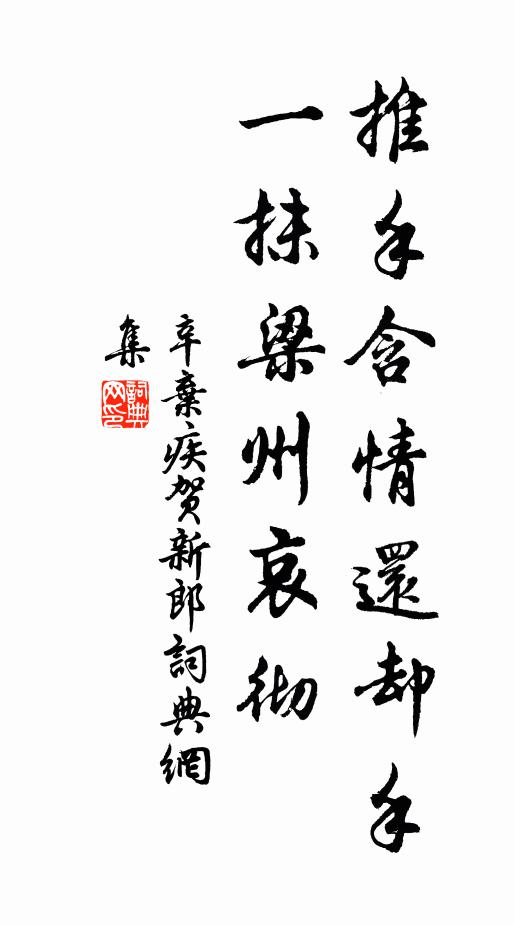 推手含情還却手
一抹梁州哀彻
辛棄疾贺新郎詞典網
集
詞典網印